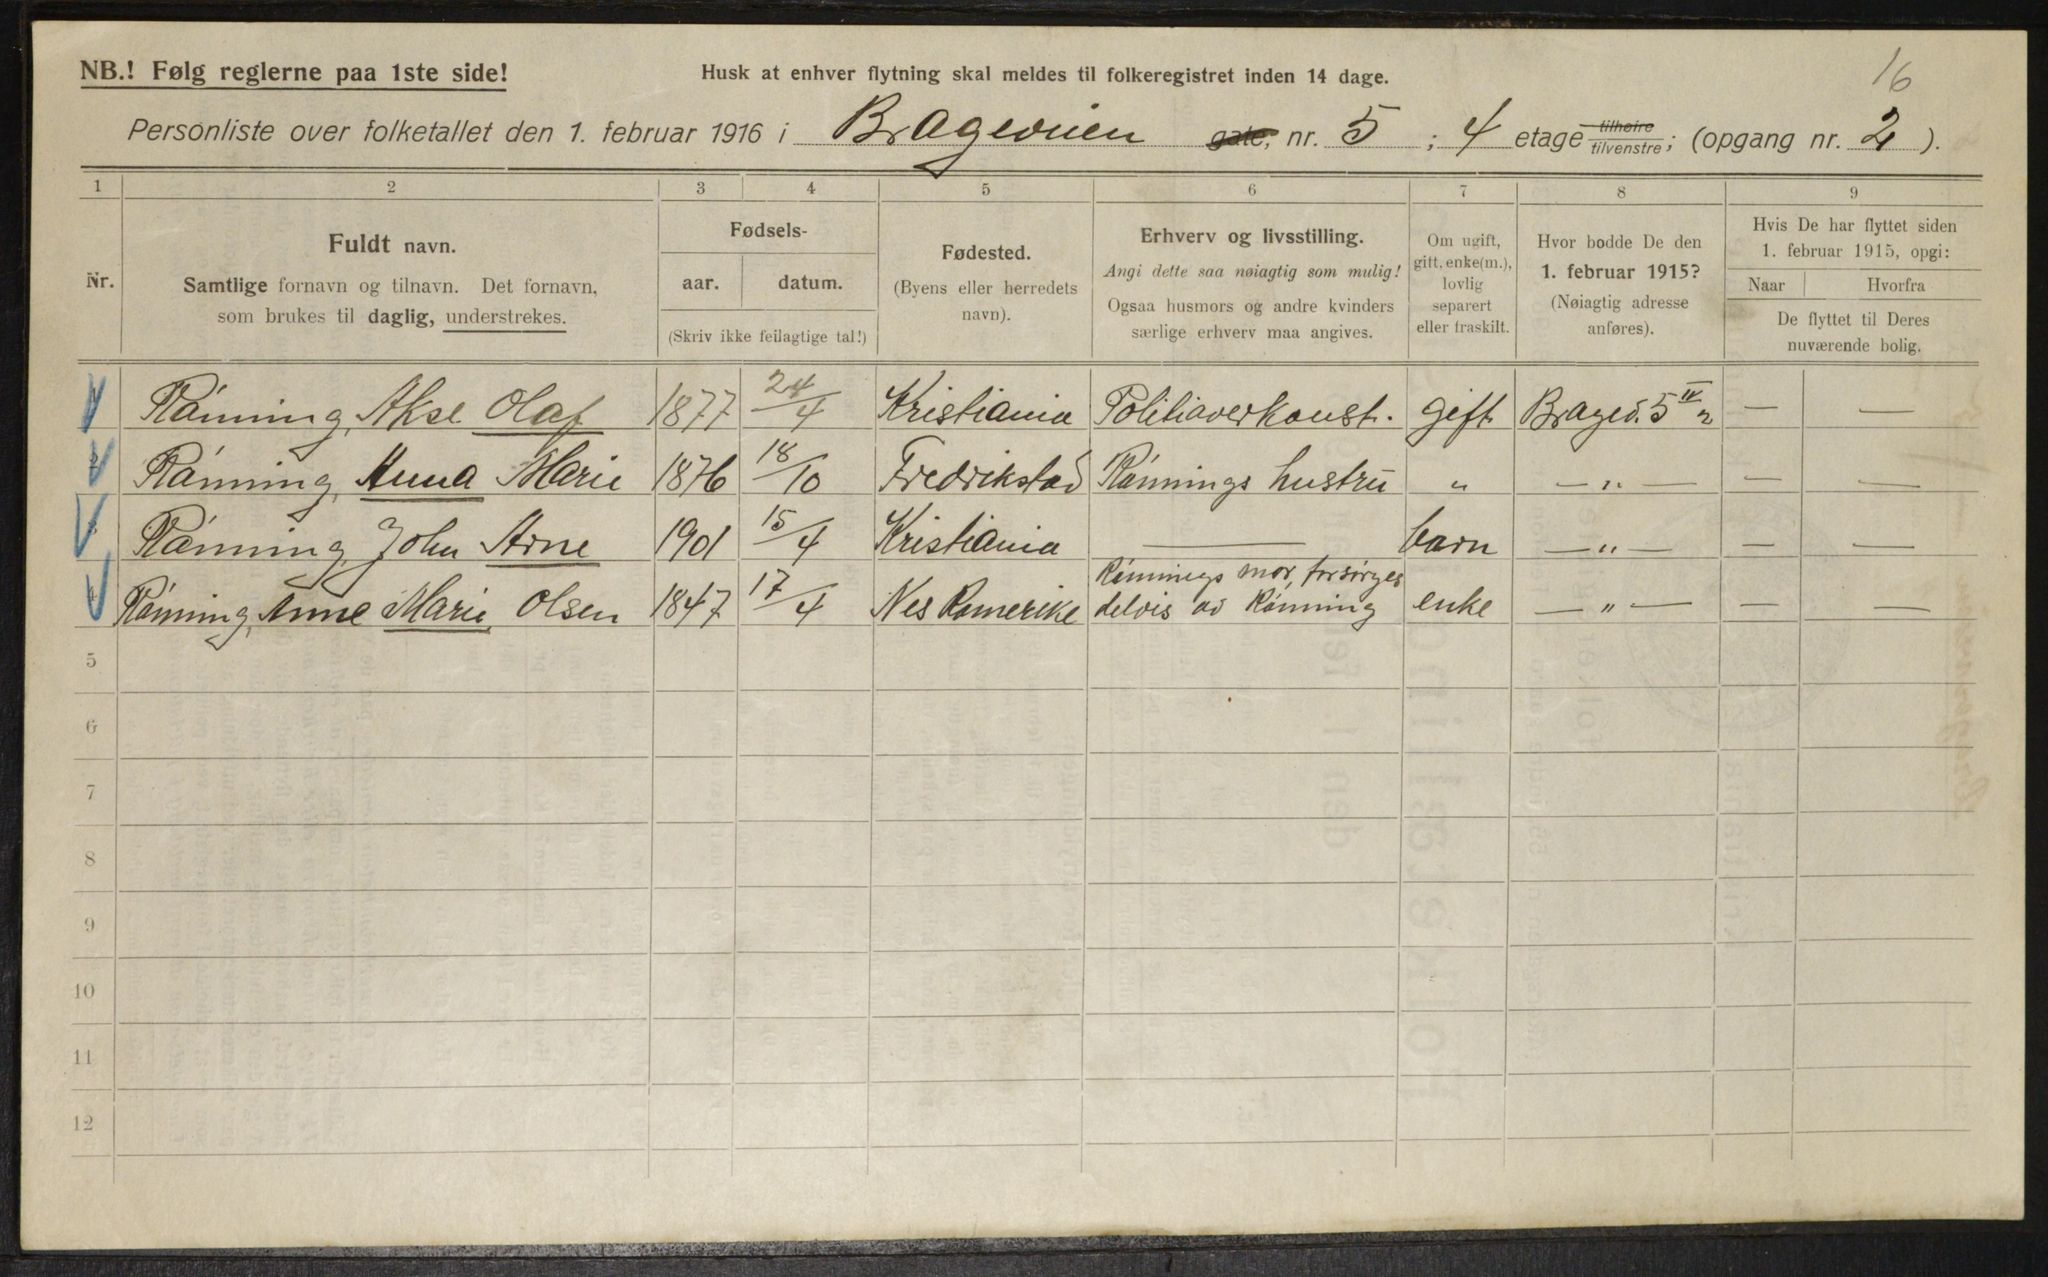 16
NB.! Følg reglerne paa 1ste side!
Husk at enhver flytning skal meldes til folkeregistret inden 14 dage.
Personliste over folketallet den 1. februar 1916 i Brageveien gate, nr. 5 ; 4 etage tilhøire tilvenstre; (opgang nr. 2 ).
1 2 3 4 5 6 7 8 9
Nr.
Fuldt navn.
Samtlige fornavn og tilnavn. Det fornavn,
som brukes til daglig, understrekes.
Fødsels-
aar. datum.
(Skriv ikke feilagtige tal!)
Fødested.
(Byens eller herredets
navn).
Erhverv og livsstilling.
Angi dette saa nøiagtig som mulig!
Ogsaa husmors og andre kvinders
særlige erhverv maa angives.
Om ugift,
gitt, enke(m.),
lovlig
separert
eller fraskilt.
Hvor bodde De den
1. februar 1915?
(Nøiagtig adresse
anføres).
Hvis De har flyttet siden
1. februar 1915, opgi:
Naar Hvorfra
De flyttet til Deres
nuværende bolig.
1 Rønning, Aksel Olaf 1877 24/4 Kristiania Politioverkonst. gift Braged. 5 IV — —
2 Rønning, Anna Marie 1876 18/10 Fredrikstad Rønnings hustru " — " — — —
3 Rønning, John Arne 1901 15/4 Kristiania — barn — " — — —
4 Rønning, Anne Marie Olsen 1847 17/4 Nes Romerike Rønnings mor, forsørges
delvis av Rønning enke — " — — —
5
6
7
8
9
10
11
12